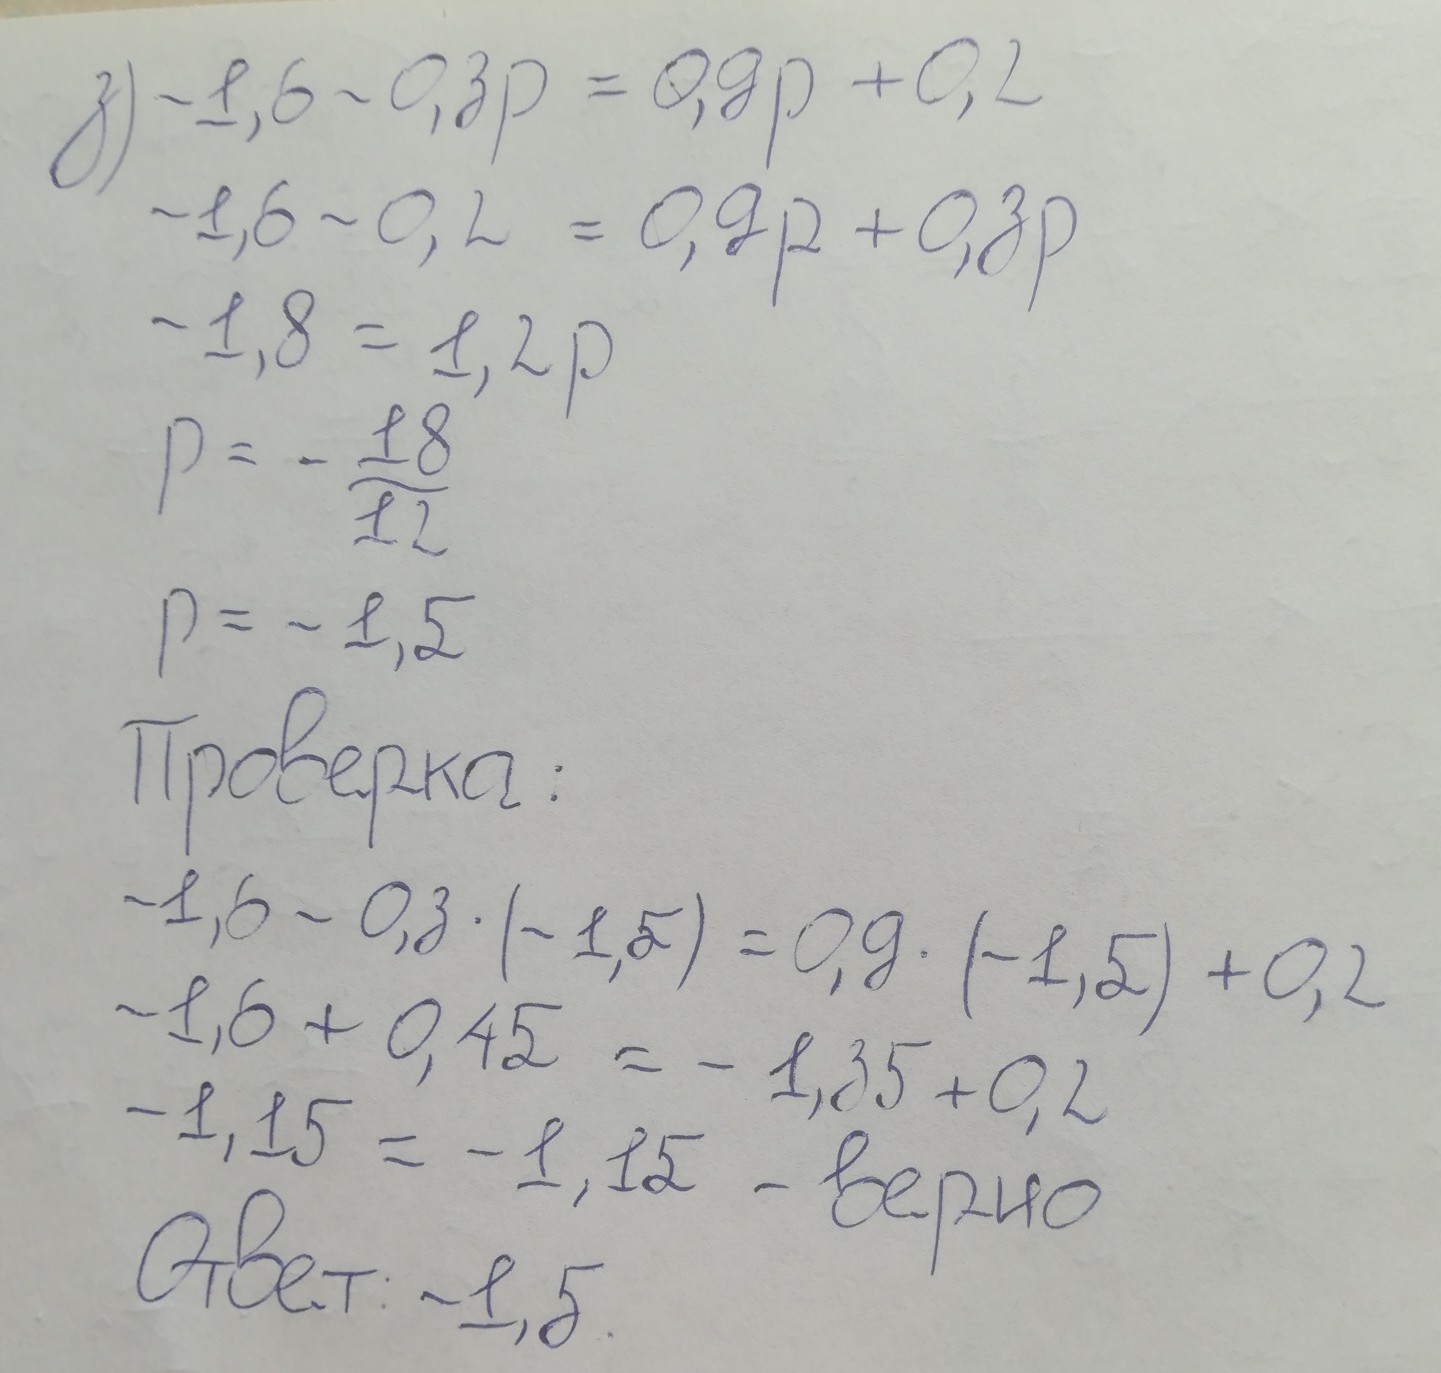 з) -1,6 - 0,3p = 0,9p + 0,2
-1,6 - 0,2 = 0,9p + 0,3p
-1,8 = 1,2p
p = - 18/12
p = -1,5
Проверка:
-1,6 - 0,3 · (-1,5) = 0,9 · (-1,5) + 0,2
-1,6 + 0,45 = - 1,35 + 0,2
-1,15 = -1,15 - верно
Ответ: -1,5.